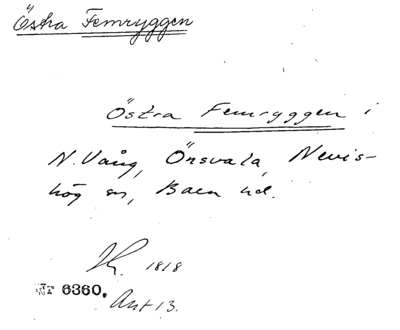 Östra Femryggen
Östra Femryggen i
N. Vång, Önsvala, Nevis-
hög sn, Bara hd.
1818
6360.
Akt 13.